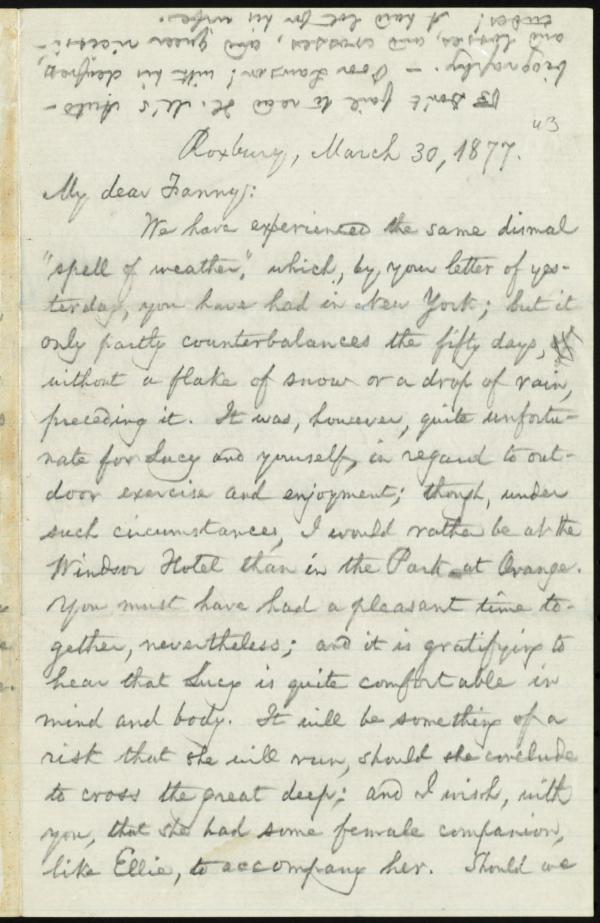 Roxbury, March 30, 1877.
My dear Fanny:
We have experienced the same dismal
"spell of weather," which, by your letter of yes-
terday, you have had in New York; but it
only partly counterbalances the fifty days,
without a flake of snow or a drop of rain,
preceding it. It was, however, quite unfortu-
nate for Lucy and yourself, in regard to out-
door exercise and enjoyment; though, under
such circumstances, I would rather be at the
Windsor Hotel than in the Park at Orange.
You must have had a pleasant time to-
gether, nevertheless; and it is gratifying to
hear that Lucy is quite comfortable in
mind and body. It will be something of a
risk that she will run, should she conclude
to cross the great deep; and I wish, with
you, that she had some female companion,
like Ellie, to accompany her. Should we
Don't fail to read H. M's auto-
biography. – Poor! with his deafness
and losses, and crosses, and queer
A hard lot for his wife.